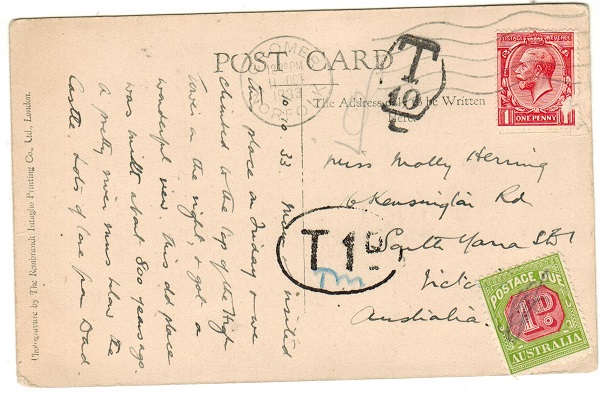 POST CARD
CROMER
12 PM
11 OCT
1933
NORFOLK
T
10
POSTAGE REVENUE
1 ONE PENNY 1
The Address only to be Written
Here
10 10 33. Mum visited
this place on Friday & we
climbed to the top of the High
Tower on the right, & got a
wonderful view. This old place
was built about 800 years ago.
A pretty river runs below the
Castle. Lots of love from Dad.
Miss Molly Herring
6 Kensington Rd
South Yarra SE1
Victoria
Australia.
T 1D.
POSTAGE DUE
1D.
AUSTRALIA
Photogravure by The Rembrandt Intaglio Printing Co., Ltd., London.